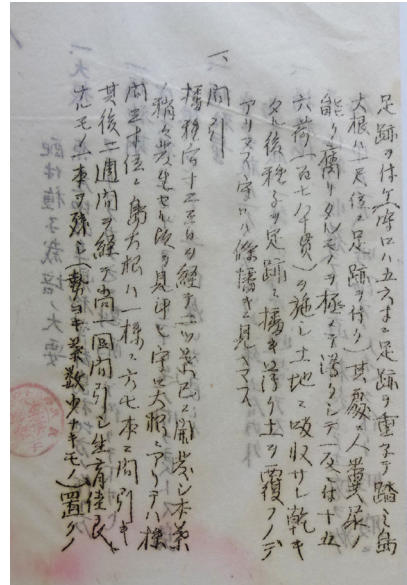 足跡ヲ付ケ 八五六寸ニ足跡ヲ重子テ踏ミ島
大根ハ一尺位ニ足跡ヲ付ケ其處ニ人糞尿ノ
能ク腐リタルモノヲ極メテ薄クシテ一反ニ付十五
六荷(百七八十貫)ヲ施シ土地ニ吸収サレ乾キ
タル後種子ヲ足跡ニ播キ薄ク土ヲ覆フノデ
アリマス守口ハ條播キニ見
一、間引
播種后十二三日ヲ経テ二ツ葉已ニ開発シ本葉
稍々発生セル頃ヲ見 大根ニアリテハ
間三本位ニ島大根ハ一様ニ六七本ニ間引キ
其後二週間ヲ経テ尚 間引シ生育佳良
ナルモノ二本ヲ残シ(勢ヨキ葉数少ナキモノ)置クノ